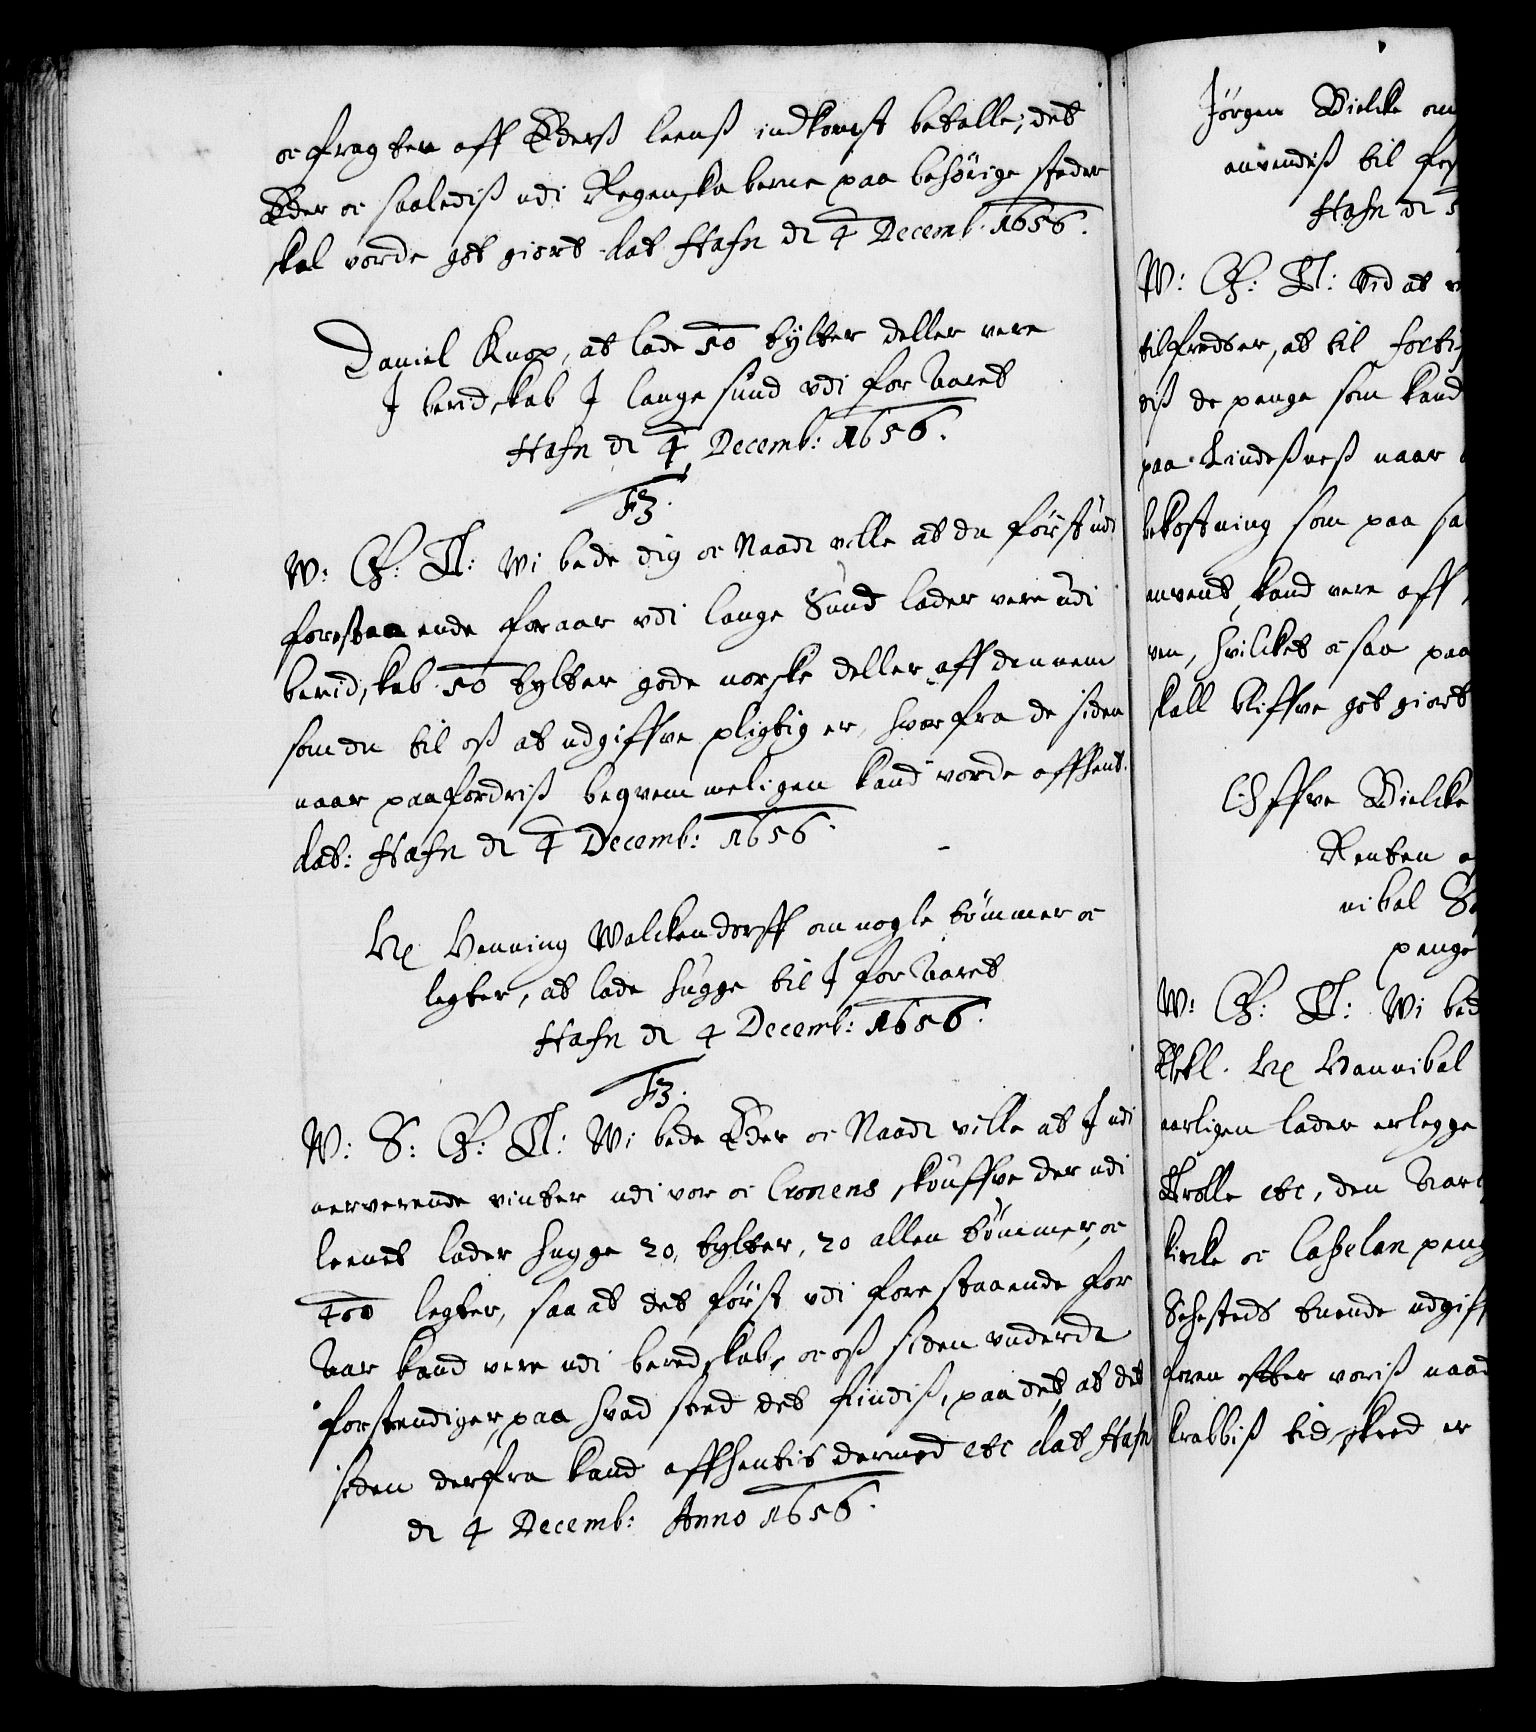 oc fragten aff Eders leens indkomst betalle; det
Eder oc saaledis udi Regenskaberne paa behörige steder
skal vorde got giort dat Hafn dl 4 Decemb. 1656.
Daniel Knop, at lade 50 tylter deller vere
I beridskab I lange sund vdi for Aaret
Hafn dl 4 Decemb: 1656.
F3.
W: G: T: Wi bede dig oc Naadl ville at du först udi
forestaaende foraar vdi lange Sund lader vere udi
beridskab 50 tylter gode norske deller aff dennem
som du til oß at udgiffve pligtig er, hvorfra de siden
naar paafordris beqvemmeligen kand vorde affhent.
dat: Hafn dl 4 Decemb: 1656.
Hr Henning Walckendorff om nogle tömmer oc
legter, at lade hugge til I for Aaret
Hafn dl 4 Decemb: 1656.
F3.
W: S: G: T: Wi bede Eder oc Naadl ville at I udi
nerverende vinter udi vor oc Cronens skouffve der udi
leenet lader hugge 20, tylter, 20 allen tömmer, oc
400 legter, saa at det först vdi forestaaende for
Aar kand vere udi beredskab, oc oß siden vnderdl
forstendiger, paa hvad sted det findis, paa det, at det
siden derfra kand affhentis dermed etc dat Hafn
dl 4 Decemb: Anno 1656.
Jörgen Bielcke om
anvendis til
Hafn dl
W: G: T: Vid at
tilfredser, at til
dis de penge som kand
paa Lindesnes naar
bekostning som paa
anvent, kand vere aff
ven, hvilcket oc saa paa
skall bliffve got giort
Offve Bielcke
Renten
nibal
penge
W: G: T: Wi
Hr Hannibal
aarligen lader erlegge
Trolle etc, den
kircke oc Capelan
Sehesteds buende
foren efter voris
krabbis tid skeed er